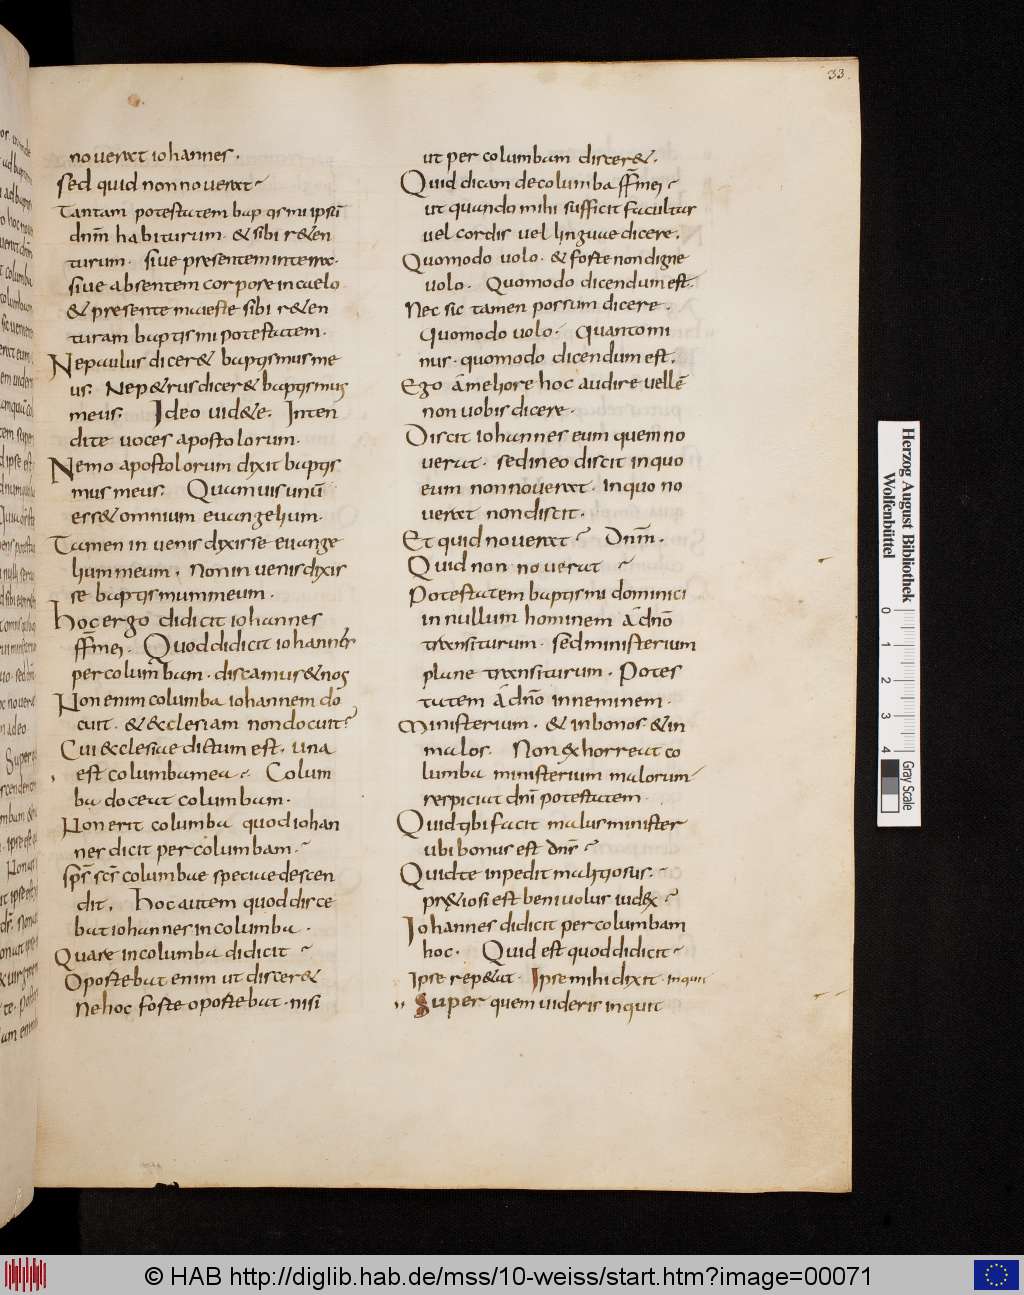 33
nouerat iohannes.
sed quid non nouerat?
Tantam potestatem baptismi ipsū
dnm̄ habiturum. & sibi r&en
turum. siue presentem in terra.
siue absentem corpore in caelo
& presente maieste sibi r&en
turam baptismi potestatem.
Ne paulus dicer& baptismus me
us. Ne p&rus dicer& baptismus
meus. Ideo uid&e. Inten
dite uoces apostolorum.
Nemo apostolorum dixit baptis
mus meus. Quamuis unū
ess& omnium euangelium.
Tamen inuenis dixisse euange
lium meum. Non inuenis dixis
se baptismum meum.
Hoc ergo didicit iohannes
ff̄ mei. Quod didicit iohannes
per columbam. discamus & nos
Non enim columba iohannem do
cuit. & ecclesiam non docuit?
Cui ecclesiae dictum est. una
est columba mea. Colum
ba doceat columbam.
Non erit columba quod iohan
nes dicit per columbam.
sp̄s sc̄s columbae speciae descen
dit. Hoc autem quod disce
bat iohannes in columba.
Quare in columba didicit?
Oportebat enim ut discer&
Ne hoc forte oportebat. nisi
ut per columbam discer&.
Quid dicam de columba ff̄ mei?
ut quando mihi sufficit facultas
uel cordis uel linguae dicere.
Quomodo uolo. & forte non digne
uolo. Quomodo dicendum est.
Nec sic tamen possum dicere.
Quomodo uolo. Quanto mi
nus. quomodo dicendum est.
Ego a meliore hoc audire uellē
non uobis dicere.
Discit iohannes eum quem no
uerat. sed in eo discit in quo
eum non nouerat. In quo no
uerat non discit.
Et quid nouerat? Dnm̄.
Quid non nouerat?
Potestatem baptismi dominici
in nullum hominem a dn̄o
transiturum. sed ministerium
plane transiturum. Potes
tatem a dn̄o in neminem.
Ministerium. & in bonos & in
malos. Non exhorreat co
lumba ministerium malorum
respiciat dn̄i potestatem
Quid tibi facit malus minister
ubi bonus est dn̄s?
Quid te inpedit malitiosus.
pr&iosi est beniuolus iudex?
Iohannes didicit per columbam
hoc. Quid est quod didicit?
Ipse rep&at. Ipse mihi dixit. inquit
Super quem uideris inquit
Herzog August Bibliothek
Wolfenbüttel
0 1 2 3 4
Gray Scale
© HAB http://diglib.hab.de/mss/10-weiss/start.htm?image=00071